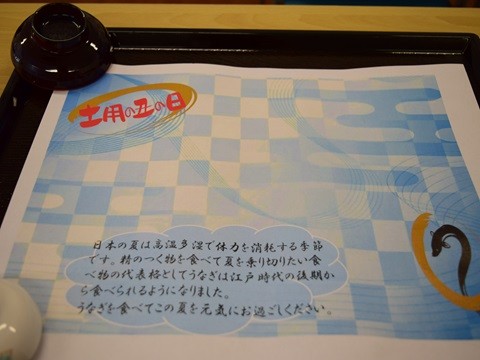 土用の丑の日
日本の夏は高温多湿で体力を消耗する季節
です。精のつく物を食べて夏を乗り切りたい食
べ物の代表格としてうなぎは江戸時代の後期か
ら食べられるようになりました。
うなぎを食べてこの夏を元気にお過ごしください。